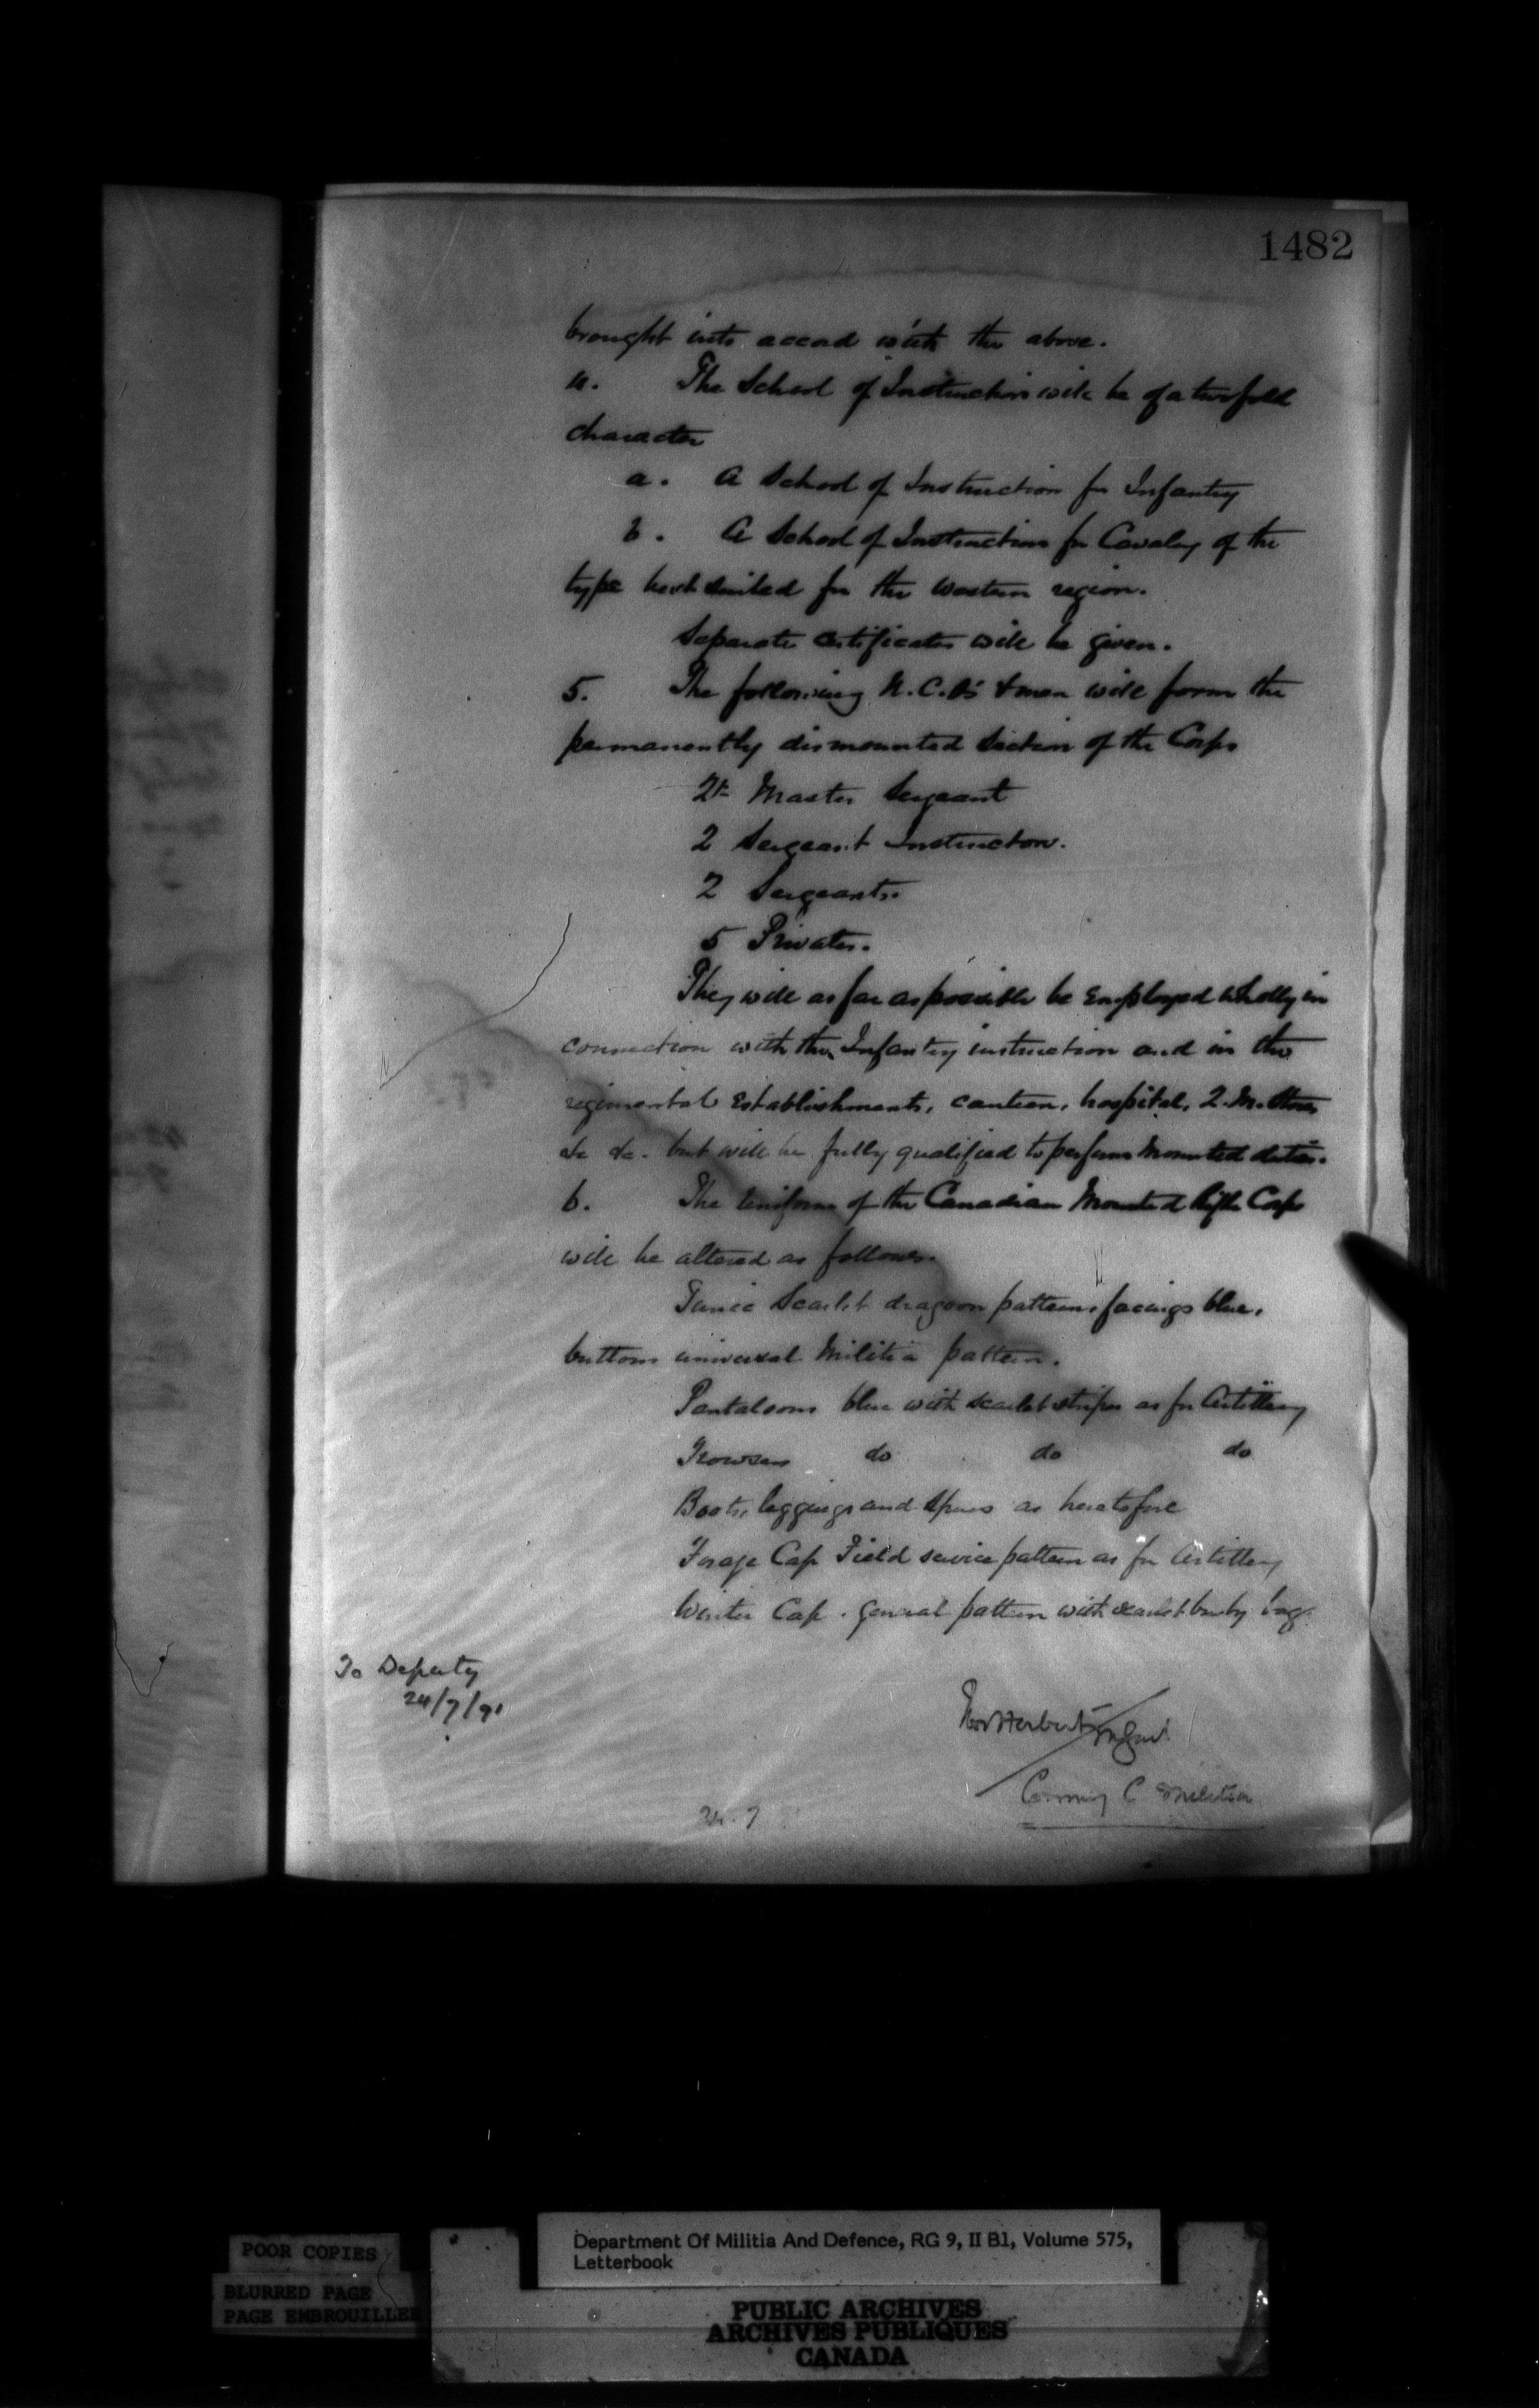 1482
brought into accord with the above.
4. The School of Instruction will be of a twofold
character
a. A School of Instruction for Infantry
b. A School of Instruction for Cavalry of the
type best suited for the western region.
Separate certificates will be given.
5. The following N.C.O's & men will form the
permanently dismounted section of the Corps
Qr Master Sergeant
2 Sergeant Instructors.
2 Sergeants.
5 Privates.
They will as far as possible be employed wholly in
connection with the Infantry instruction and in the
regimental establishments, canteen, hospital, Q.M. Stores
&c &c. but will be fully qualified to perform mounted duties.
6. The Uniform of the Canadian Mounted Rifle Corps
will be altered as follows.
Tunic Scarlet dragoon pattern, facings blue,
buttons universal Militia pattern.
Pantaloons blue with scarlet stripes as for Artillery
Trowsers do do do
Boots, leggings and Spurs as heretofore
Forage Cap Field service pattern as for Artillery
Winter Cap. General pattern with scarlet busby bag.
To Deputy
24/7/91
Ivor Herbert M Genl
Commg C Militia
24.7
Department Of Militia And Defence, RG 9, II B1, Volume 575,
Letterbook
POOR COPIES
BLURRED PAGE
PAGE EMBROUILLEE
PUBLIC ARCHIVES
ARCHIVES PUBLIQUES
CANADA